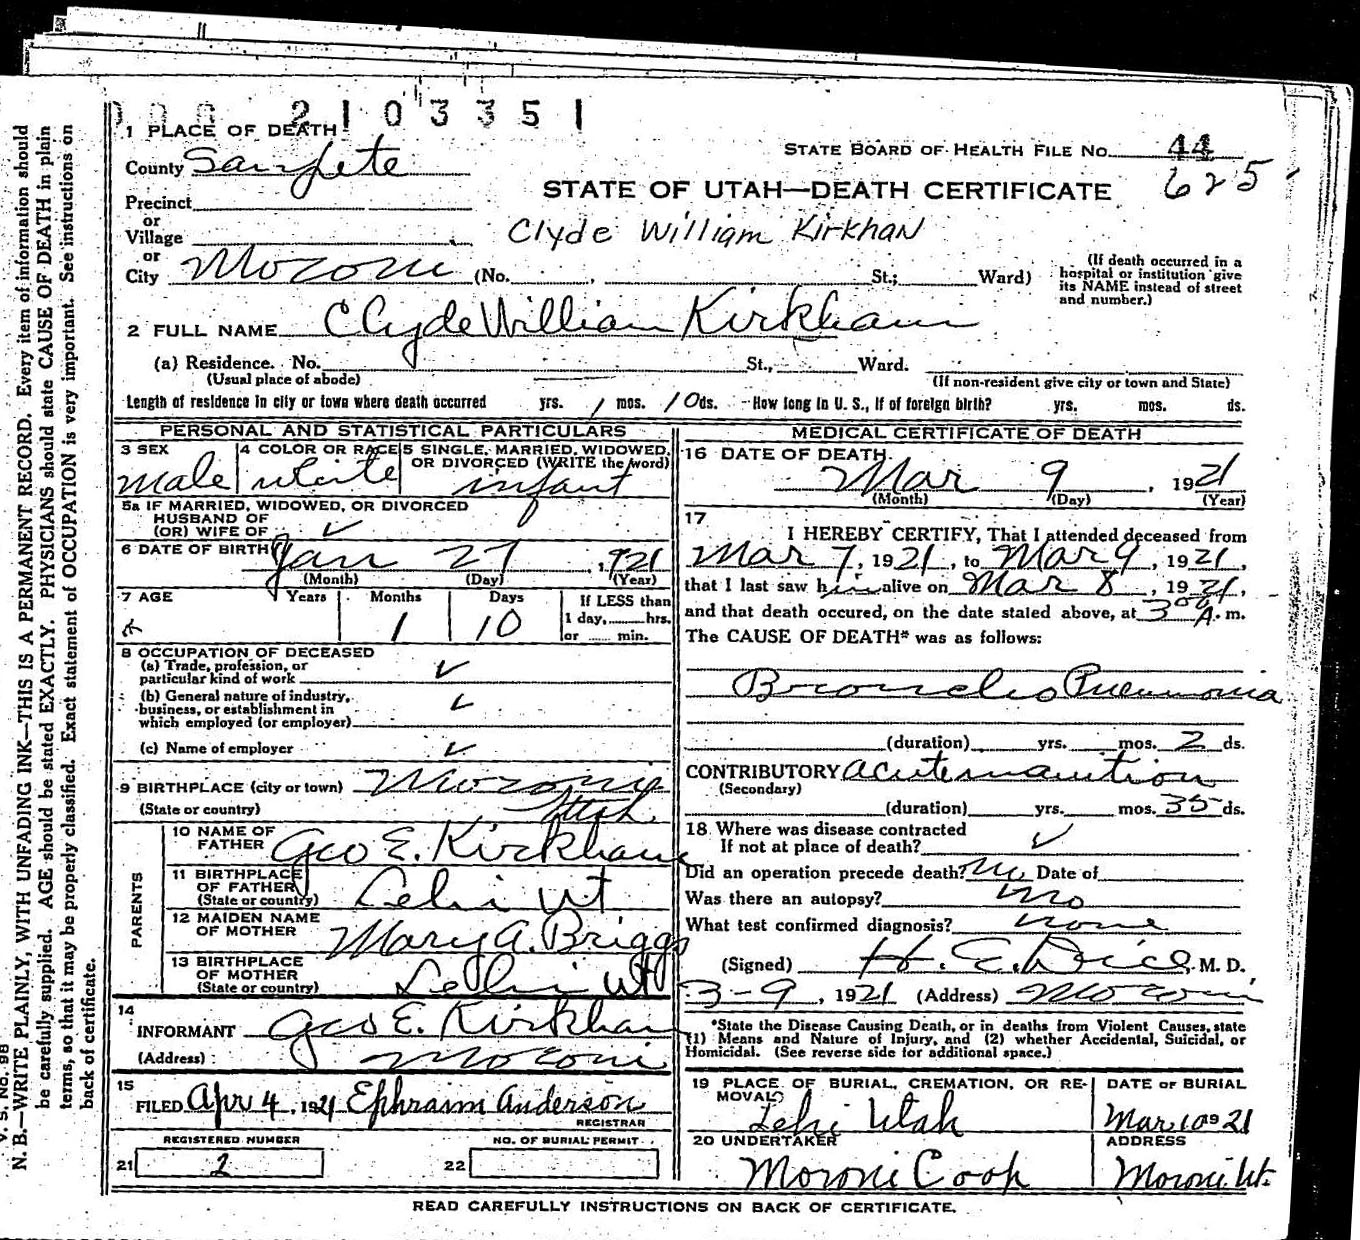 2 1 0 3 3 5 1
1 PLACE OF DEATH
STATE BOARD OF HEALTH FILE NO. 44
County Sanpete
625
STATE OF UTAH—DEATH CERTIFICATE
Precinct
or
Village
Clyde William Kirkham
or
City Moroni (No. , St.; Ward)
(If death occurred in a hospital or institution give its NAME instead of street and number.)
2 FULL NAME Clyde William Kirkham
(a) Residence. No. St., Ward.
(Usual place of abode)
(If non-resident give city or town and State)
Length of residence in city or town where death occurred yrs. 1 mos. 10 ds. How long in U. S., if of foreign birth? yrs. mos. ds.
PERSONAL AND STATISTICAL PARTICULARS
3 SEX
male
4 COLOR OR RACE
white
5 SINGLE, MARRIED, WIDOWED, OR DIVORCED (WRITE the word)
infant
5a IF MARRIED, WIDOWED, OR DIVORCED
HUSBAND OF
(OR) WIFE OF ✓
6 DATE OF BIRTH Jan 27, 1921
(Month) (Day) (Year)
7 AGE Years Months Days If LESS than
1 10 1 day, hrs.
or min.
8 OCCUPATION OF DECEASED
(a) Trade, profession, or
particular kind of work ✓
(b) General nature of industry,
business, or establishment in
which employed (or employer) ✓
(c) Name of employer ✓
9 BIRTHPLACE (city or town) Moroni
(State or country) Utah
PARENTS
10 NAME OF
FATHER Geo E. Kirkham
11 BIRTHPLACE
OF FATHER
(State or country) Lehi Ut
12 MAIDEN NAME
OF MOTHER Mary A. Briggs
13 BIRTHPLACE
OF MOTHER
(State or country) Lehi Ut
14
INFORMANT Geo E. Kirkham
(Address) Moroni
15
FILED Apr 4, 1921 Ephraim Anderson
REGISTRAR
REGISTERED NUMBER
21 2
NO. OF BURIAL PERMIT
22
MEDICAL CERTIFICATE OF DEATH
16 DATE OF DEATH
Mar 9, 1921
(Month) (Day) (Year)
17
I HEREBY CERTIFY, That I attended deceased from
Mar 7, 1921, to Mar 9, 1921,
that I last saw him alive on Mar 8, 1921,
and that death occured, on the date stated above, at 3 00 A. m.
The CAUSE OF DEATH* was as follows:
Broncho Pneumonia
(duration) yrs. mos. 2 ds.
CONTRIBUTORY Acute inanition
(Secondary)
(duration) yrs. mos. 35 ds.
18 Where was disease contracted
If not at place of death? ✓
Did an operation precede death? No Date of
Was there an autopsy? No
What test confirmed diagnosis? none
(Signed) H. E. M. D.
3-9, 1921 (Address) Moroni
*State the Disease Causing Death, or in deaths from Violent Causes, state
(1) Means and Nature of Injury, and (2) whether Accidental, Suicidal, or
Homicidal. (See reverse side for additional space.)
19 PLACE OF BURIAL, CREMATION, OR REMOVAL
Lehi Utah
DATE OF BURIAL
Mar 10 1921
20 UNDERTAKER
Moroni Coop
ADDRESS
Moroni Ut.
READ CAREFULLY INSTRUCTIONS ON BACK OF CERTIFICATE.
V. S. No. 98
N. B.—WRITE PLAINLY, WITH UNFADING INK—THIS IS A PERMANENT RECORD. Every item of information should
be carefully supplied. AGE should be stated EXACTLY. PHYSICIANS should state CAUSE OF DEATH in plain
terms, so that it may be properly classified. Exact statement of OCCUPATION is very important. See instructions on
back of certificate.